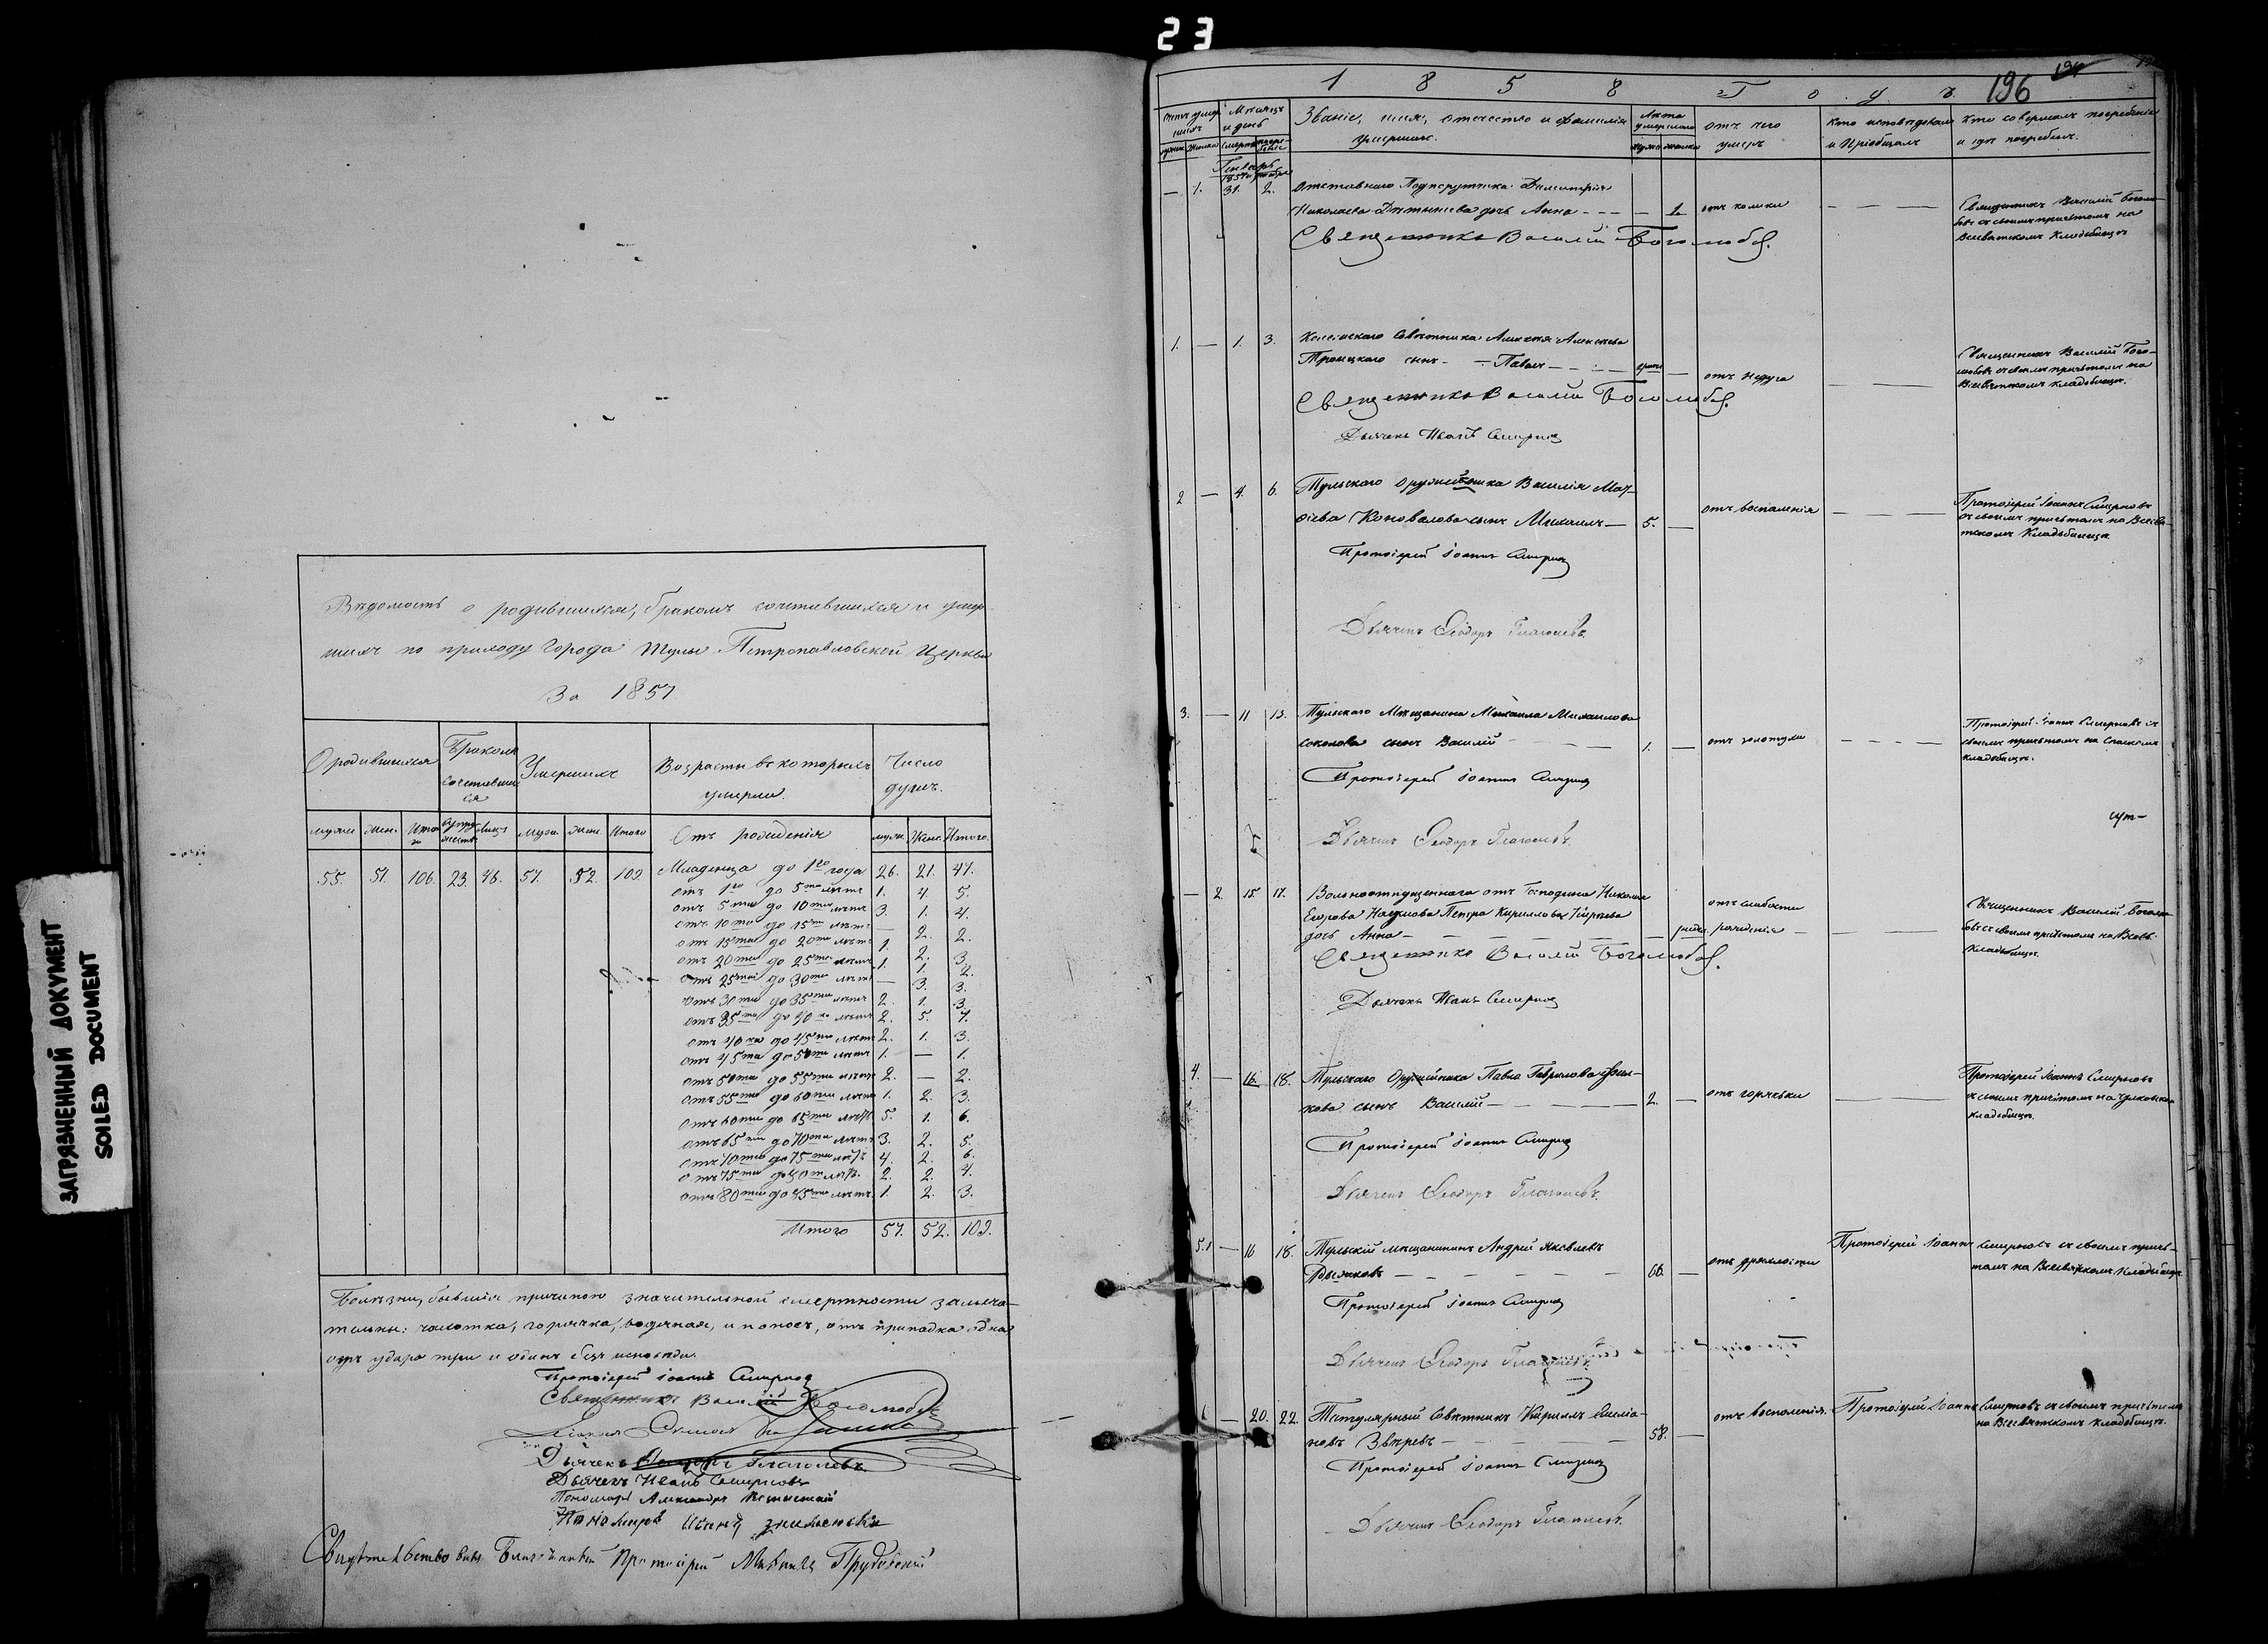 23
ЗАГРЯЗНЕННЫЙ ДОКУМЕНТ
SOILED DOCUMENT
Вѣдомость о родившихся, бракомъ сочетавшихся и умер-
шихъ по приходу города Тулы Петропавловской Церкви
За 1857
О родившихся
Бракомъ сочетавших ся
Умершихъ
Возрасты въ которыхъ умерли.
Число душъ.
Отъ рожденія
муж. Жен. Итого.
55. 51. 106. 23. 46. 57. 52. 109.
Младенца до 1го года 26. 21. 47.
отъ 1го до 5ти лѣтъ 1. 4. 5.
отъ 5ти до 10ти лѣтъ 3. 1. 4.
отъ 10ти до 15ти лѣтъ — 2. 2.
отъ 15ти до 20ти лѣтъ 1. 2. 3.
отъ 20ти до 25ти лѣтъ 1. 1. 2.
отъ 25ти до 30ти лѣтъ — 3. 3.
отъ 30ти до 35ти лѣтъ 2. 1. 3.
отъ 35ти до 40ка лѣтъ 2. 5. 7.
отъ 40ка до 45ти лѣтъ 2. 1. 3.
отъ 45ти до 50ти лѣтъ 1. — 1.
отъ 50ти до 55ти лѣтъ 2. — 2.
отъ 55ти до 60ти лѣтъ 1. 2. 3.
отъ 60ти до 65ти лѣтъ 5. 1. 6.
отъ 65ти до 70ти лѣтъ 3. 2. 5.
отъ 70ти до 75ти лѣтъ 4. 2. 6.
отъ 75ти до 80ти лѣтъ 2. 2. 4.
отъ 80ти до 85ти лѣтъ 1. 2. 3.
Итого 57. 52. 109.
Болѣзни, бывшія причиною значительной смертности замѣча-
тельны: чахотка, горячка, водяная, и поносъ, отъ припадка одна
отъ удара три и одинъ безъ исповѣди.
Протоіерей Іоаннъ Смирновъ
Священникъ Василій Боголюбовъ
Дьячекъ Ѳеодоръ Глаголевъ
Дьячекъ Иванъ Смирновъ
Пономарь Александръ
Пономарь Иванъ
Свидѣтельствовалъ Благочинный Протоіерей Михаилъ Прудовский
1858 Годъ. 196
Мѣсяцъ и день
Званіе, имя, отчество и фамилія умершихъ.
Лѣта умершаго
отъ чего умеръ
Кто исповѣдовалъ и Пріобщалъ
Кто совершалъ погребеніе и гдѣ погребенъ.
Генварь
— 1. 31. 2. Отставнаго Подпоручика Димитрія
Николаева дочь Анна — 1. отъ колики
Священникъ Василій Боголю-
бовъ съ своимъ причтомъ на
Всесвятскомъ Кладбищѣ
Священникъ Василій Боголюбовъ.
1. — 1. 3. Совѣтника Алексѣя Алексѣева
Троицкаго сынъ — Павелъ отъ недуга
Священникъ Василій Бого-
любовъ съ своимъ причтомъ на
Всесвятскомъ кладбищѣ.
Священникъ Василій Боголюбовъ.
Дьячекъ Иванъ Смирновъ
2 — 4. 6. Тульскаго оружейника Василія Мат-
ѳіева Коновалова сынъ Михаилъ — 5. — отъ воспаленія
Протоіерей Іоаннъ Смирновъ
съ своимъ причтомъ на Всесвя-
тскомъ Кладбищѣ
Протоіерей Іоаннъ Смирновъ
Дьячекъ Ѳеодоръ Глаголевъ.
3. — 11 13. Тульскаго Мѣщанина Михаила Михаилова
Соколова сынъ Василій 1. — отъ золотухи
Протоіерей Іоаннъ Смирновъ съ
своимъ причтомъ на Спасскомъ
кладбищѣ.
Протоіерей Іоаннъ Смирновъ
Дьячекъ Ѳеодоръ Глаголевъ.
— 2. 15. 17. Вольноотпущеннаго отъ Господина Николая
Егорова Наумова Петра Кириллова
дочь Анна — отъ слабости рожденія
Священникъ Василій Боголю-
бовъ съ своимъ причтомъ на Всесв.
Кладбищѣ.
Священникъ Василій Боголюбовъ.
Дьячекъ Иванъ Смирновъ
4. — 16. 18. Тульскаго Оружейника Павла Гаврилова
сынъ Василій — 2. — отъ горячки
Протоіерей Іоаннъ Смирновъ
съ своимъ причтомъ на
кладбищѣ.
Протоіерей Іоаннъ Смирновъ
Дьячекъ Ѳеодоръ Глаголевъ.
5. — 16 18. Тульскій мѣщанинъ Андрей Яковлевъ
66. — отъ дряхлости Протоіерей Іоаннъ Смирновъ съ своимъ прич-
томъ на Всесвятскомъ Кладбищѣ
Протоіерей Іоаннъ Смирновъ
Дьячекъ Ѳеодоръ Глаголевъ.
6 — 20. 22. Титулярный Совѣтникъ Кириллъ Емелія-
новъ Звѣревъ — 58. — отъ воспаленія. Протоіерей Іоаннъ Смирновъ съ своимъ причтомъ
на Всесвятскомъ кладбищѣ.
Протоіерей Іоаннъ Смирновъ
Дьячекъ Ѳеодоръ Глаголевъ.